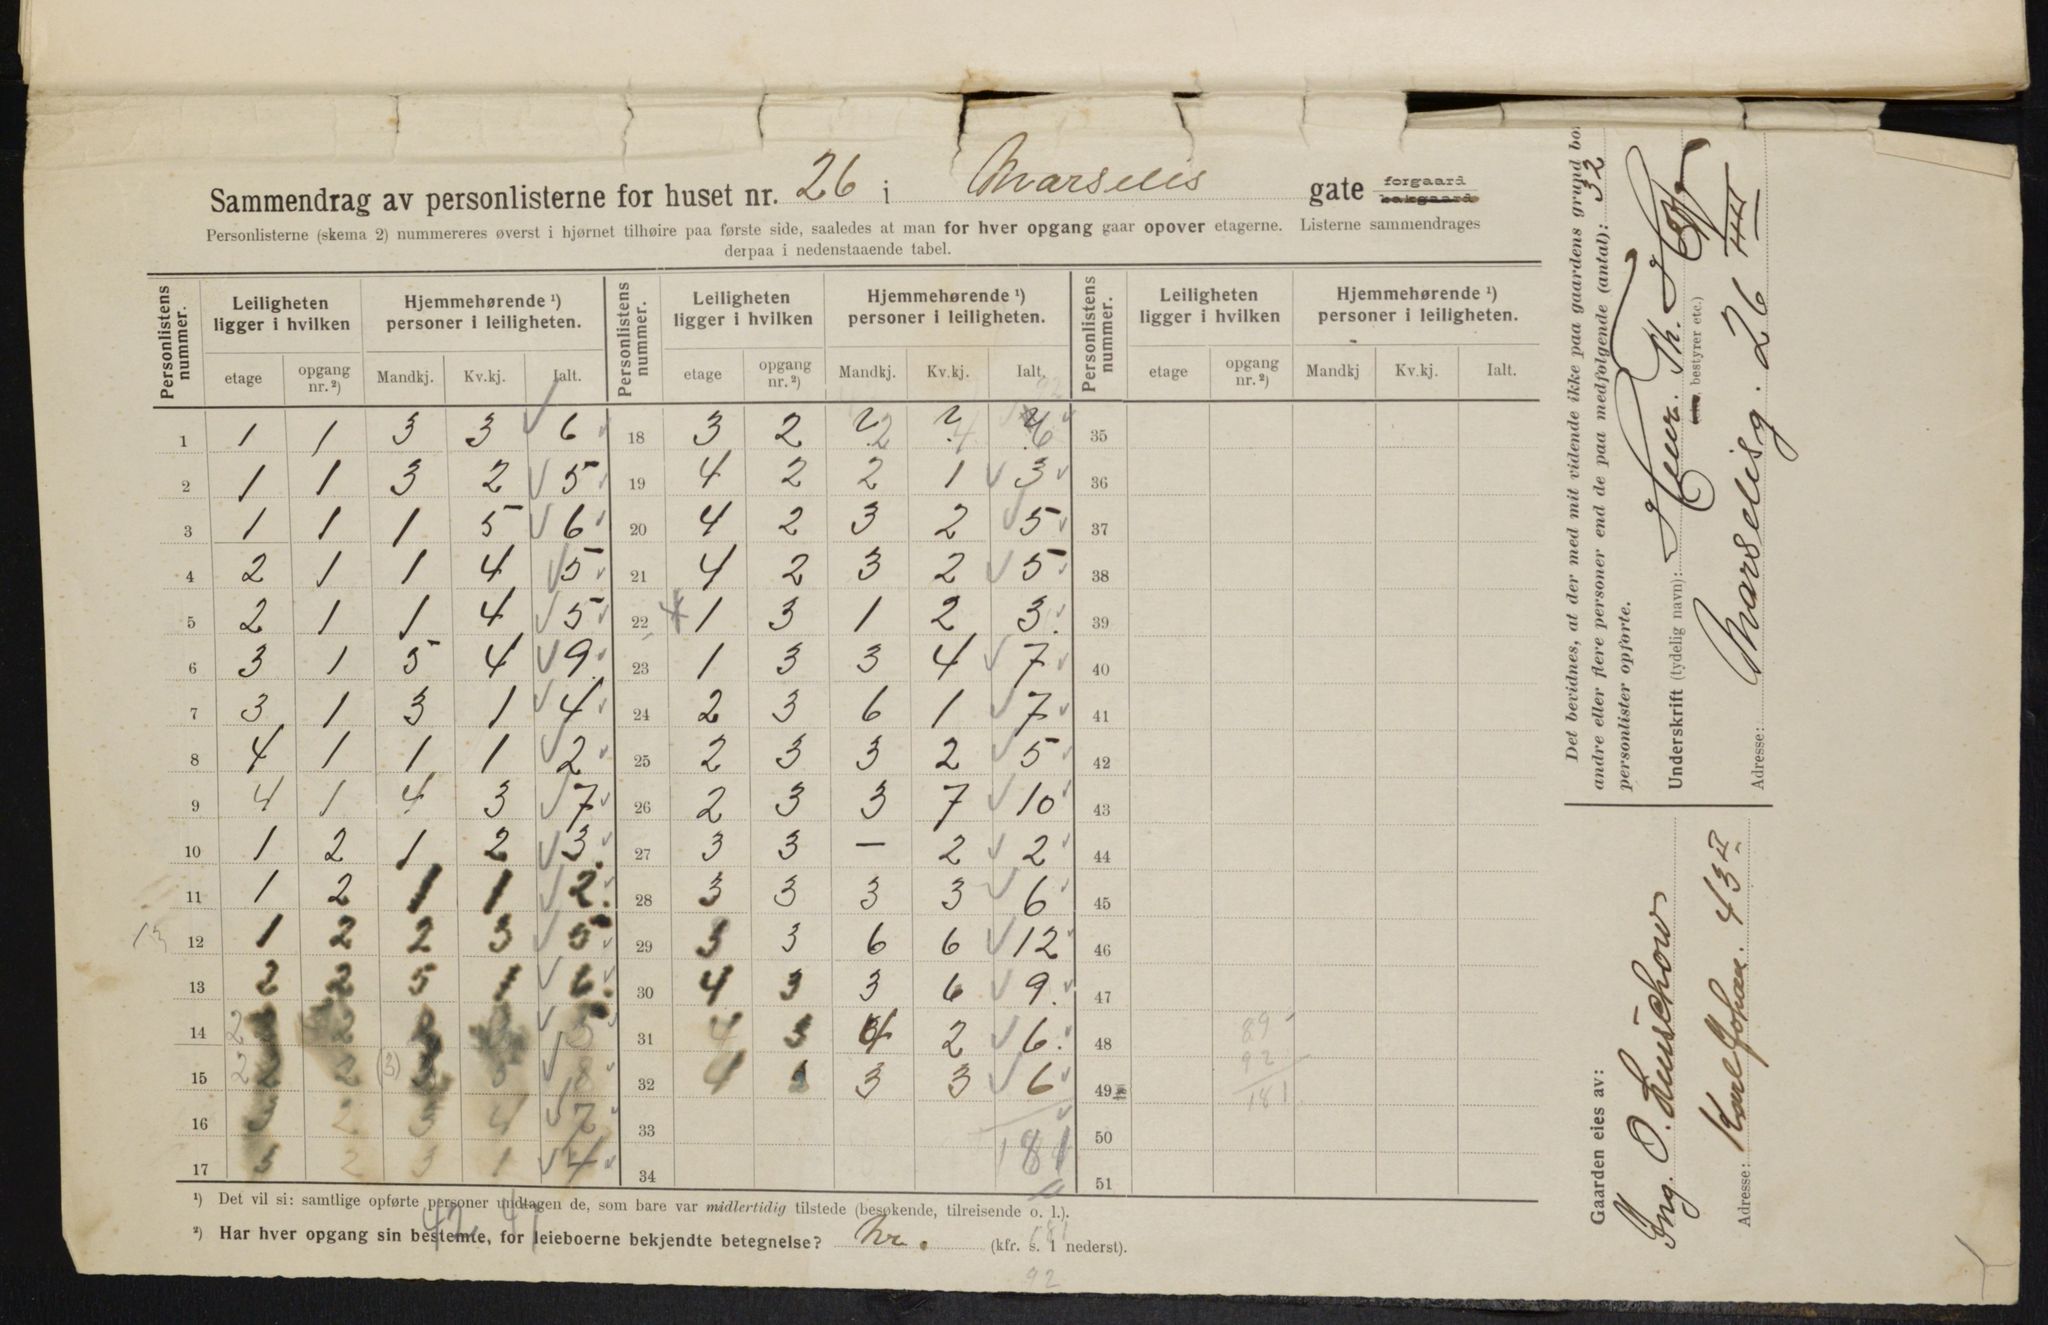 Sammendrag av personlisterne for huset nr. 26 i Marselis gate forgaard bakgaard
Personlisterne (skema 2) nummereres øverst i hjørnet tilhøire paa første side, saaledes at man for hver opgang gaar opover etagerne. Listerne sammendrages
derpaa i nedenstaaende tabel.
Personlistens nummer. Leiligheten ligger i hvilken Hjemmehørende ¹) personer i leiligheten. Personlistens nummer. Leiligheten ligger i hvilken Hjemmehørende ¹) personer i leiligheten. Personlistens nummer. Leiligheten ligger i hvilken Hjemmehørende ¹) personer i leiligheten.
etage opgang nr. ²) Mandkj. Kv.kj. Ialt. etage opgang nr. ²) Mandkj. Kv.kj. Ialt. etage opgang nr. ²) Mandkj Kv.kj. Ialt.
1 1 1 3 3 6 18 3 2 2 4 6 35
2 1 1 3 2 5 19 4 2 2 1 3 36
3 1 1 1 5 6 20 4 2 3 2 5 37
4 2 1 1 4 5 21 4 2 3 2 5 38
5 2 1 1 4 5 22 1 3 1 2 3 39
6 3 1 5 4 9 23 1 3 3 4 7 40
7 3 1 3 1 4 24 2 3 6 1 7 41
8 4 1 1 1 2 25 2 3 3 2 5 42
9 4 1 4 3 7 26 2 3 3 7 10 43
10 1 2 1 2 3 27 3 3 – 2 2 44
11 1 2 1 1 2 28 3 3 3 3 6 45
12 1 2 2 3 5 29 3 3 6 6 12 46
13 2 2 5 1 6 30 4 3 3 6 9 47
14 2 2 5 31 4 3 4 2 6 48 89
15 2 2 (3) 5 8 32 4 3 3 3 6 49 92
181
16 3 2 3 4 7 33 50
17 3 2 3 1 4 34 181 51
¹) Det vil si: samtlige opførte personer undtagen de, som bare var midlertidig tilstede (besøkende, tilreisende o. l.).
²) Har hver opgang sin bestemte, for leieboerne bekjendte betegnelse? (kfr. s. 1 nederst).
42 47
181
92
Det bevidnes, at der med mit vidende ikke paa gaardens grund bo
andre eller flere personer end de paa medfølgende (antal): 32
personlister opførte.
Underskrift (tydelig navn): Henr. Th.
bestyrer etc.)
Adresse: Marselisg. 26
Gaarden eies av:
Ing. O.
Adresse: Karl Johan. 43 II